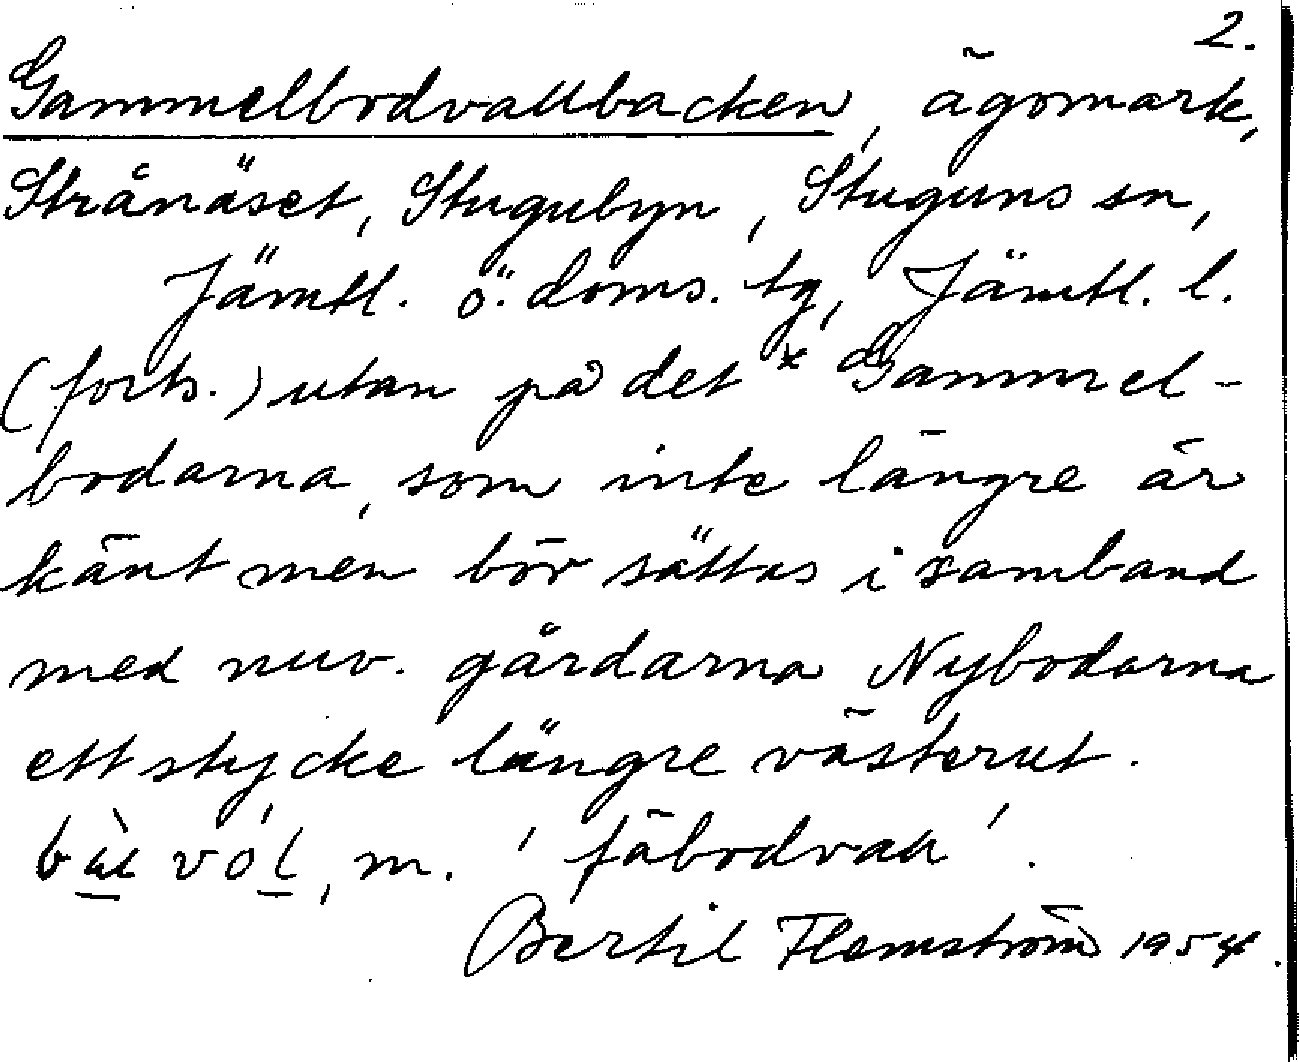 2.
Gammelbodvallbacken, ägomark,
Strånäset, Stugubyn, Stuguns sn,
Jämtl. ö. doms. tg, Jämtl. l.
(forts.) utan på det *Gammel-
bodarna, som inte längre är
känt men bör sättas i samband
med nuv. gårdarna Nybodarna
ett stycke längre västerut.
m. 'fäbodvall'.
Bertil Flemström 1954.